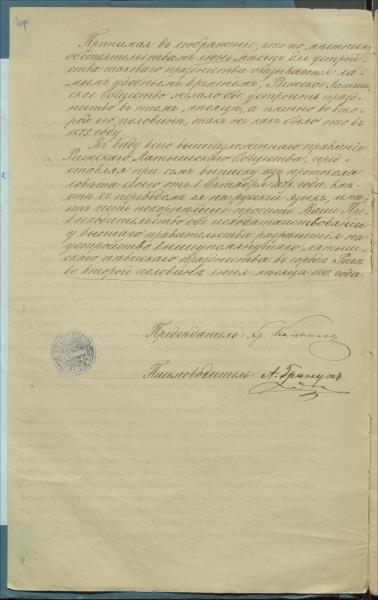 Принимая въ соображеніе, что по мѣстнымъ
обстоятельствамъ іюнь мѣсяцъ для устрой-
ства таковаго празднества оказывается са-
мымъ удобнымъ временемъ, Рижское Латыш-
ское Общество желало бы устроить празд-
нество въ томъ мѣсяцѣ, а именно во вто-
рой его половинѣ, такъ же какъ было это въ
1873 году.
Въ виду всего вышеизложеннаго правленіе
Рижскаго Латышскаго Общества, пред-
ставляя при семъ выписку изъ протокола
совѣта своего отъ Октября 1878 года, вмѣ-
стѣ съ переводомъ ея на русскій языкъ, имѣ-
етъ честь покорнѣйше просить Ваше Пре-
восходительство объ исходатайствованіи
у высшаго правительства разрѣшенія на
устройство вышеупомянутаго латыш-
скаго пѣвческаго празднества въ городѣ Ригѣ
во второй половинѣ іюня мѣсяца 1880 года.
Предсѣдатель:
Письмоводитель: А.